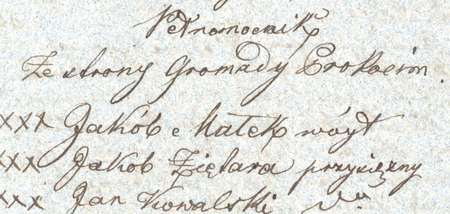 Pełnomocnik
Ze strony Gromady Prokocim.
XXX Jakób Małek wóyt
XXX Jakob Ziętara przysiężny
XXX Jan Kowalski